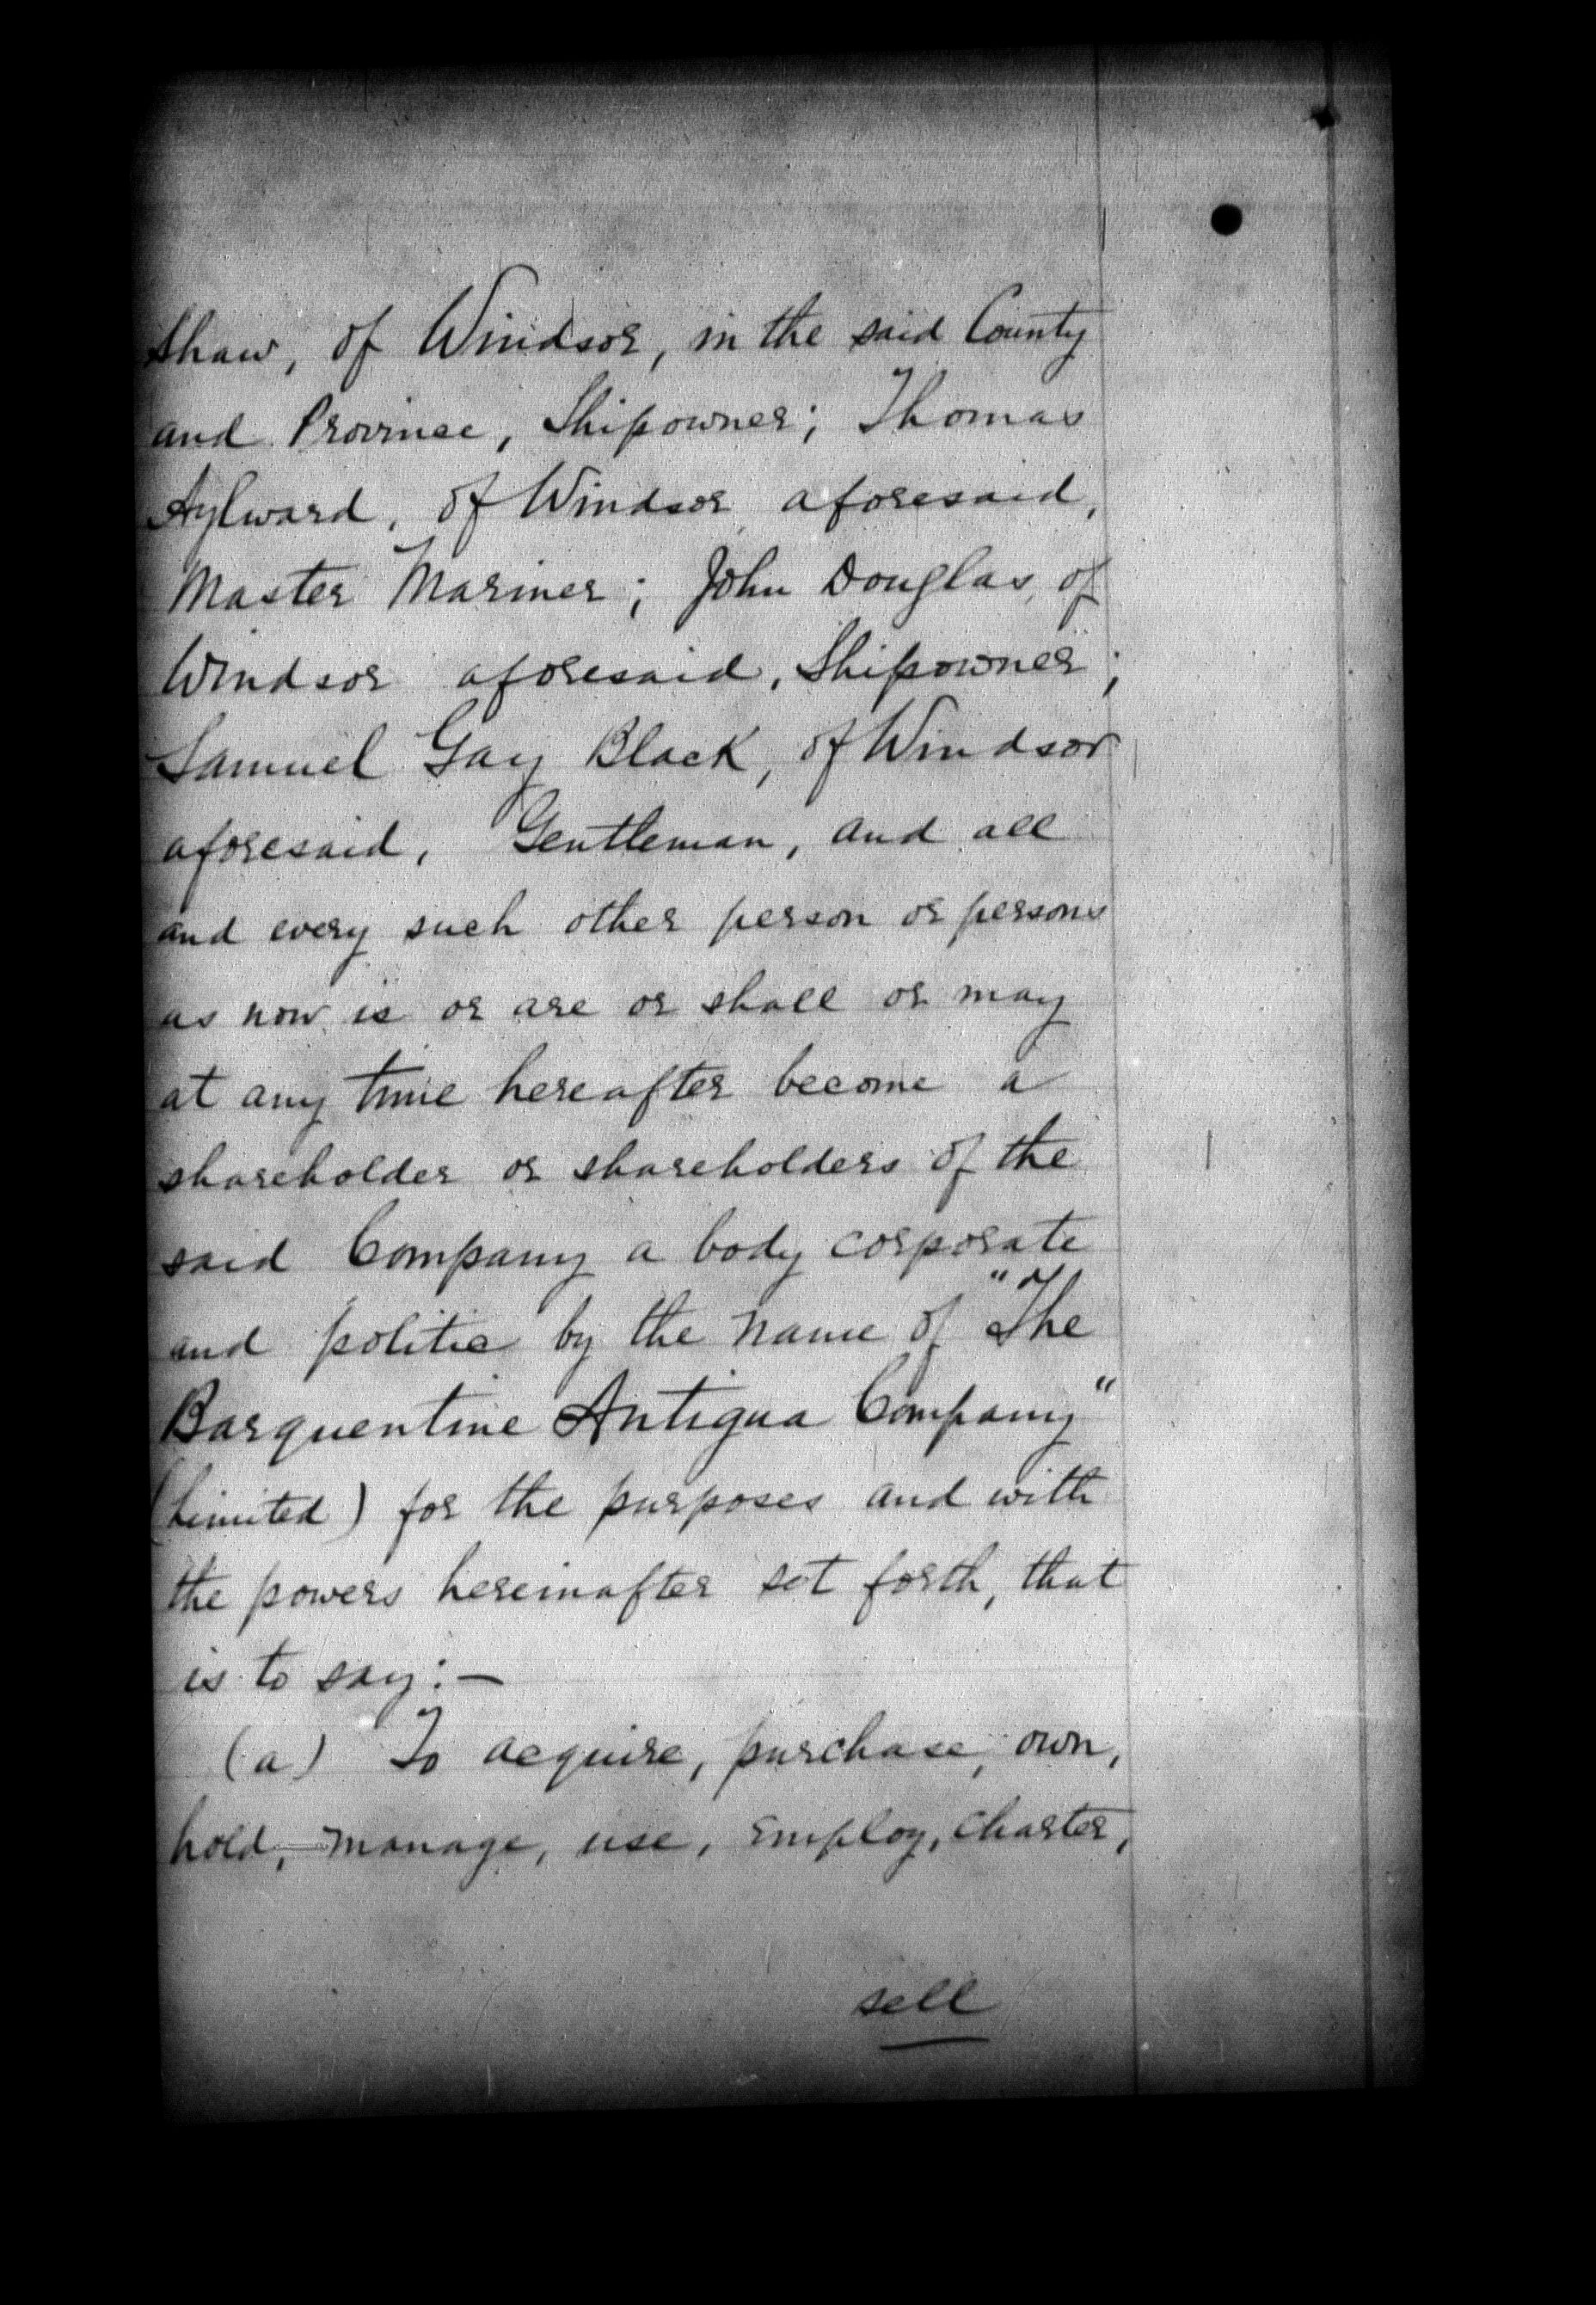 Shaw, of Windsor, in the said County
and Province, Shipowner; Thomas
Aylward, of Windsor aforesaid,
Master Mariner; John Douglas, of
Windsor aforesaid, Shipowner;
Samuel Gay Black, of Windsor
aforesaid, Gentleman, and all
and every such other person or persons
as now is or are or shall or may
at any time hereafter become a
shareholder or shareholders of the
said Company a body corporate
and politic by the name of "The
Barquentine Antigua Company"
(Limited) for the purposes and with
the powers hereinafter set forth, that
is to say:—
(a) To acquire, purchase, own,
hold, manage, use, employ, charter,
sell